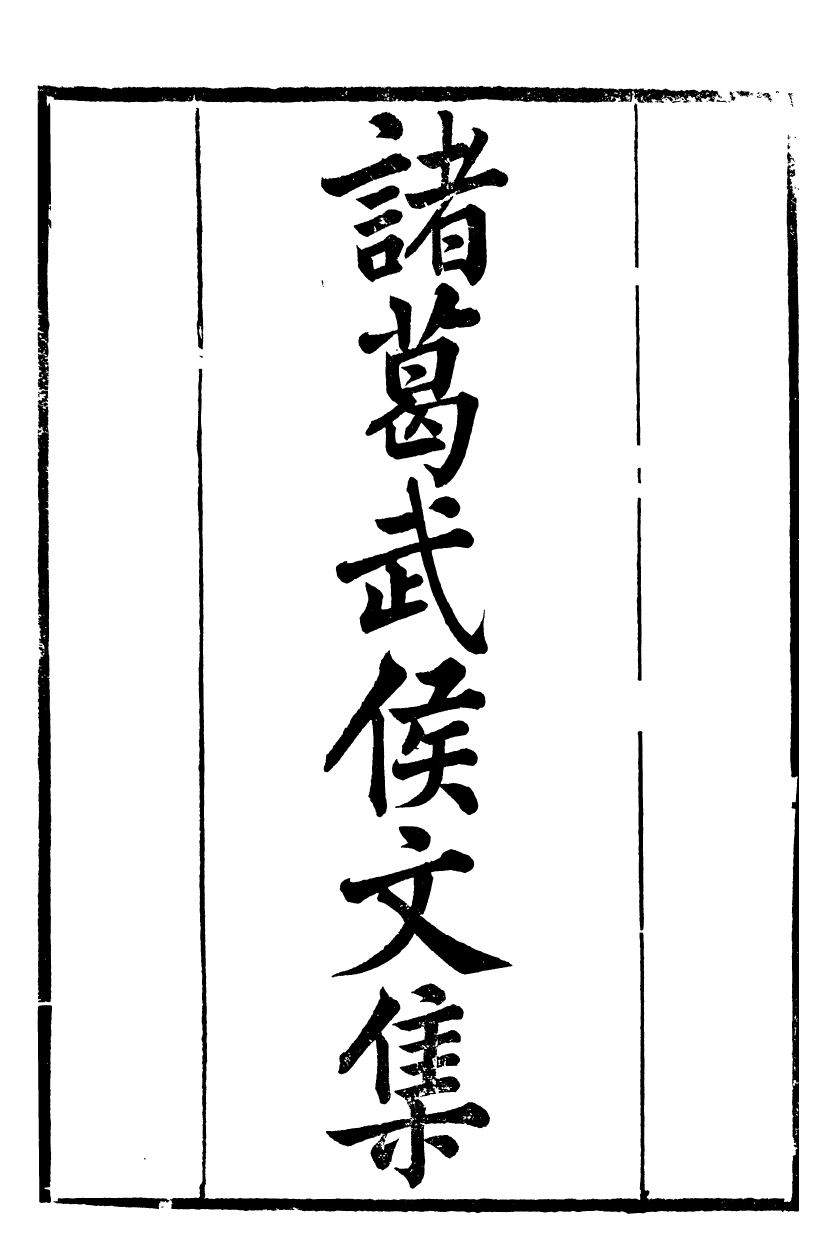 諸葛武侯文集